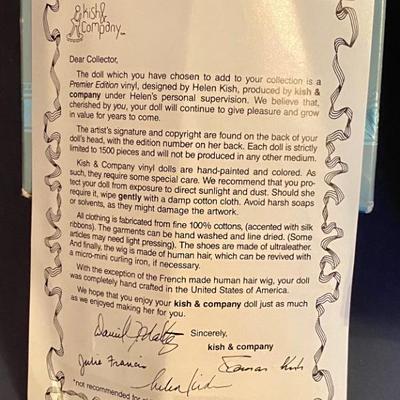 kish &
Company
Dear Collector,
The doll which you have chosen to add to your collection is a
Premier Edition vinyl, designed by Helen Kish, produced by kish &
company under Helen's personal supervision. We believe that,
cherished by you, your doll will continue to give pleasure and grow
in value for years to come.
The artist's signature and copyright are found on the back of your
doll's head, with the edition number on her back. Each doll is strictly
limited to 1500 pieces and will not be produced in any other medium.
Kish & Company vinyl dolls are hand-painted and colored. As
such, they require some special care. We recommend that you pro-
tect your doll from exposure to direct sunlight and dust. Should she
require it, wipe gently with a damp cotton cloth. Avoid harsh soaps
or solvents, as they might damage the artwork.
All clothing is fabricated from fine 100% cottons, (accented with silk
ribbons). The garments can be hand washed and line dried. (Some
articles may need light pressing). The shoes are made of ultraleather.
And finally, the wig is made of human hair, which can be revived with
a micro-mini curling iron, if necessary.
With the exception of the French made human hair wig, your doll
was completely hand crafted in the United States of America.
We hope that you enjoy your kish & company doll just as much
as we enjoyed making her for you.
Sincerely,
kish & company
Julie Francis
Helen Kish
*not recommended for